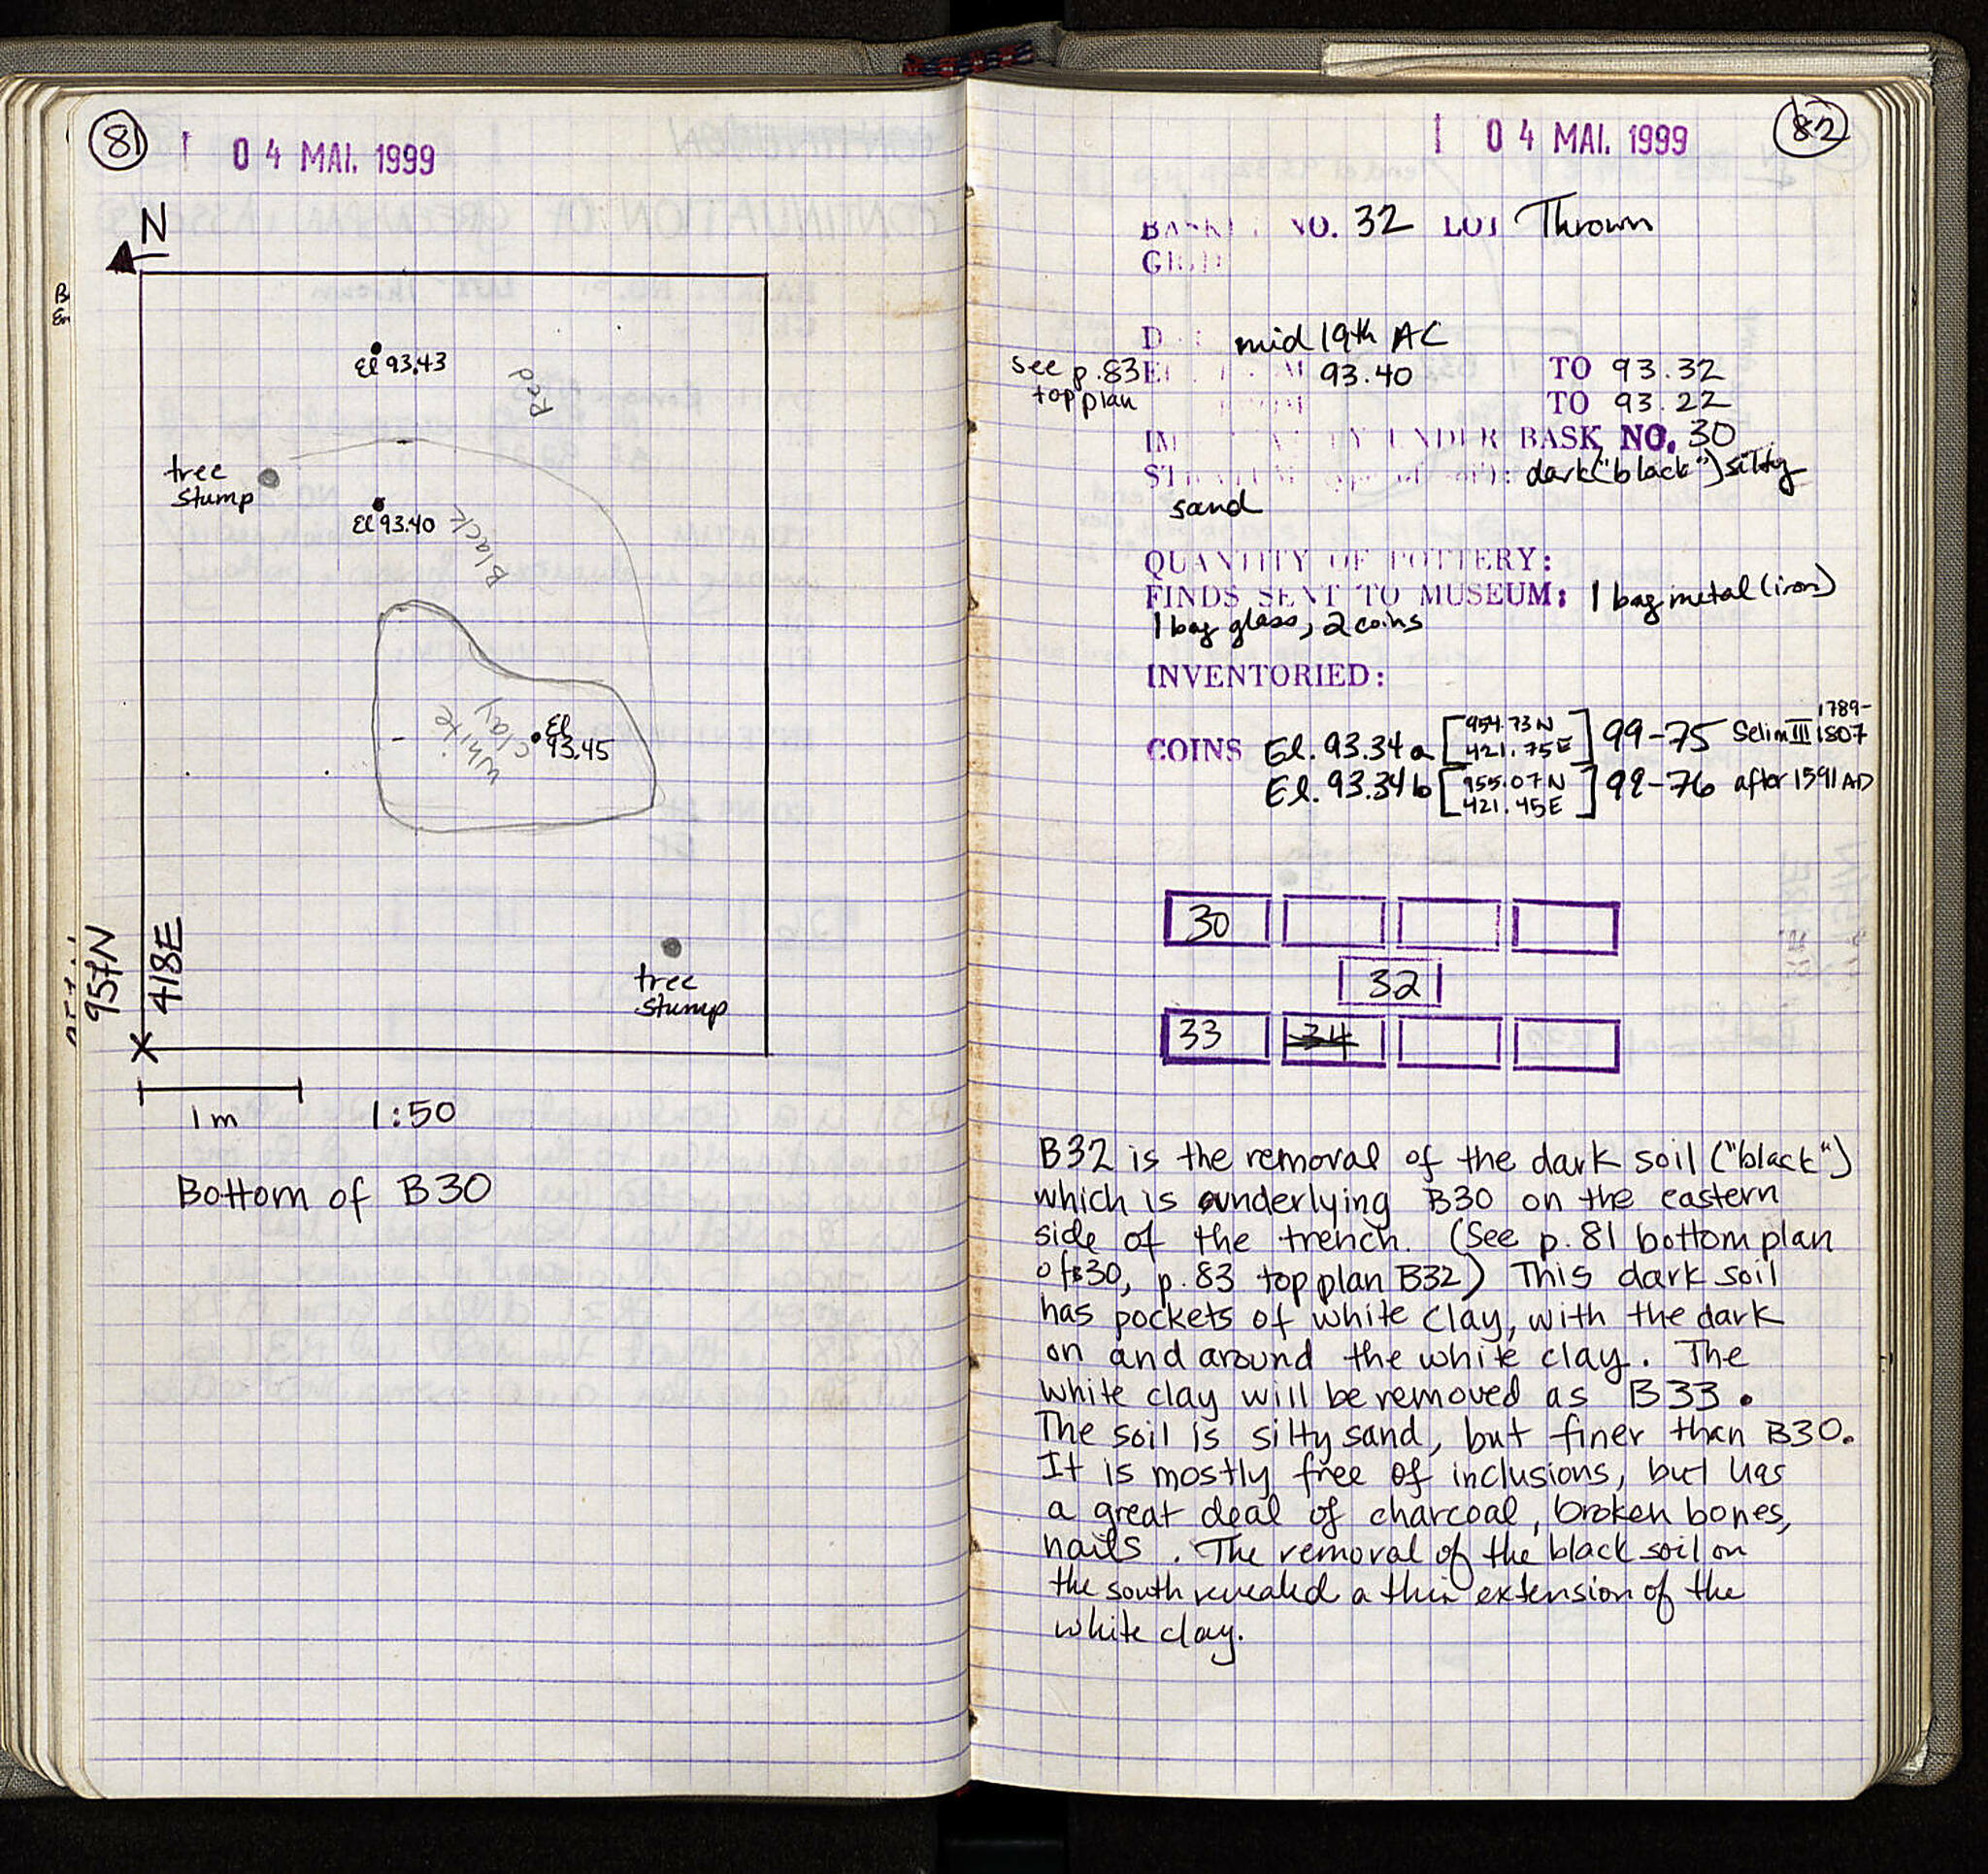 81
04 MAI. 1999
N
El 93.43
Red
tree
stump
El 93.40
Black
White
clay
El
93.45
957N
418E
tree
stump
1m 1:50
Bottom of B30
04 MAI. 1999
82
NO. 32 LOT Thrown
mid 19th AC
see p.83 93.40 TO 93.32
top plan TO 93.22
UNDER BASK NO. 30
dark ("black") silty
sand
QUANTITY OF POTTERY:
FINDS SENT TO MUSEUM: 1 bag metal (iron)
1 bag glass, 2 coins
INVENTORIED:
COINS El. 93.34a [954.73N 421.75E] 99-75 Selim III 1789-1807
El. 93.34b [955.07N 421.45E] 99-76 after 1591 AD
30
32
33 34
B32 is the removal of the dark soil ("black")
which is underlying B30 on the eastern
side of the trench. (See p.81 bottom plan
of B30, p.83 top plan B32) This dark soil
has pockets of white clay, with the dark
on and around the white clay. The
white clay will be removed as B33.
The soil is silty sand, but finer than B30.
It is mostly free of inclusions, but has
a great deal of charcoal, broken bones,
nails. The removal of the black soil on
the south revealed a thin extension of the
white clay.